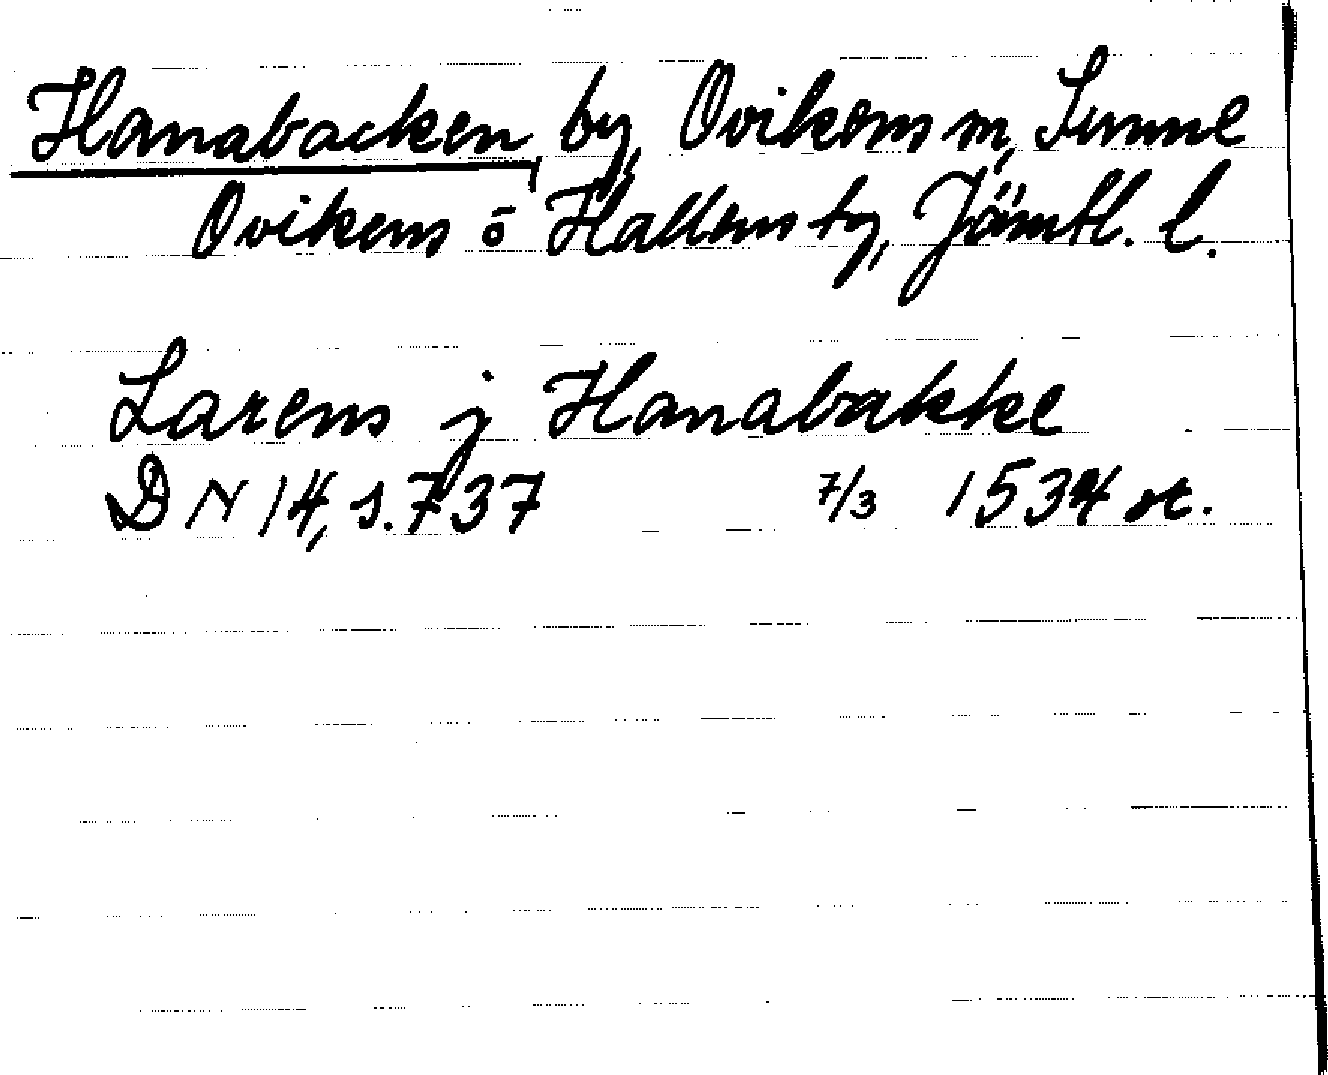 Hanabacken, by, Ovikens sn, Sunne
Ovikens o Hallens tg, Jämtl. l.
Larens j Hanabakke
DN 14, s. 737 7/3 1534 or.